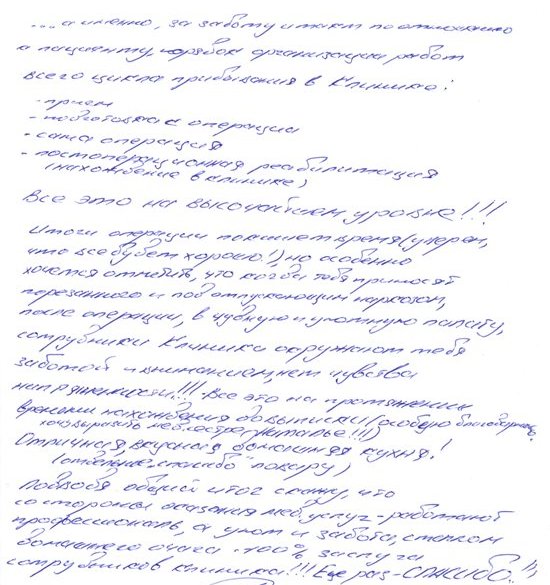 ... а именно, за заботу и такт по отношению
к пациенту, порядок организации работ
всего цикла прибывания в Клинике:
- прием
- подготовка к операции
- сама операция
- постоперационная реабилитация
(нахождение в клинике)
Все это на высочайшем уровне!!!
Итоги операции покажет время (уверен,
что все будет хорошо!) но особенно
хочется отметить, что когда тебя привозят
перезанного и под отпускающим наркозом,
после операции, в чудную и уютную палату,
сотрудники Клиники окружают тебя
заботой и вниманием, нет чувства
напряженности!!!! Все это на протяжении
времени нахождения до выписки (особую благодарность
хочу выразить медсестре Наталье!!!)
Отличная, вкусная домашняя кухня!
(отдельное "спасибо" повару)
Подводя общий итог скажу, что
со стороны оказания мед. услуг - работают
профессионалы, а уют и забота, с теплом
домашнего очага - 100% заслуга
сотрудников клиники!!! Еще раз - СПАСИБО!!!